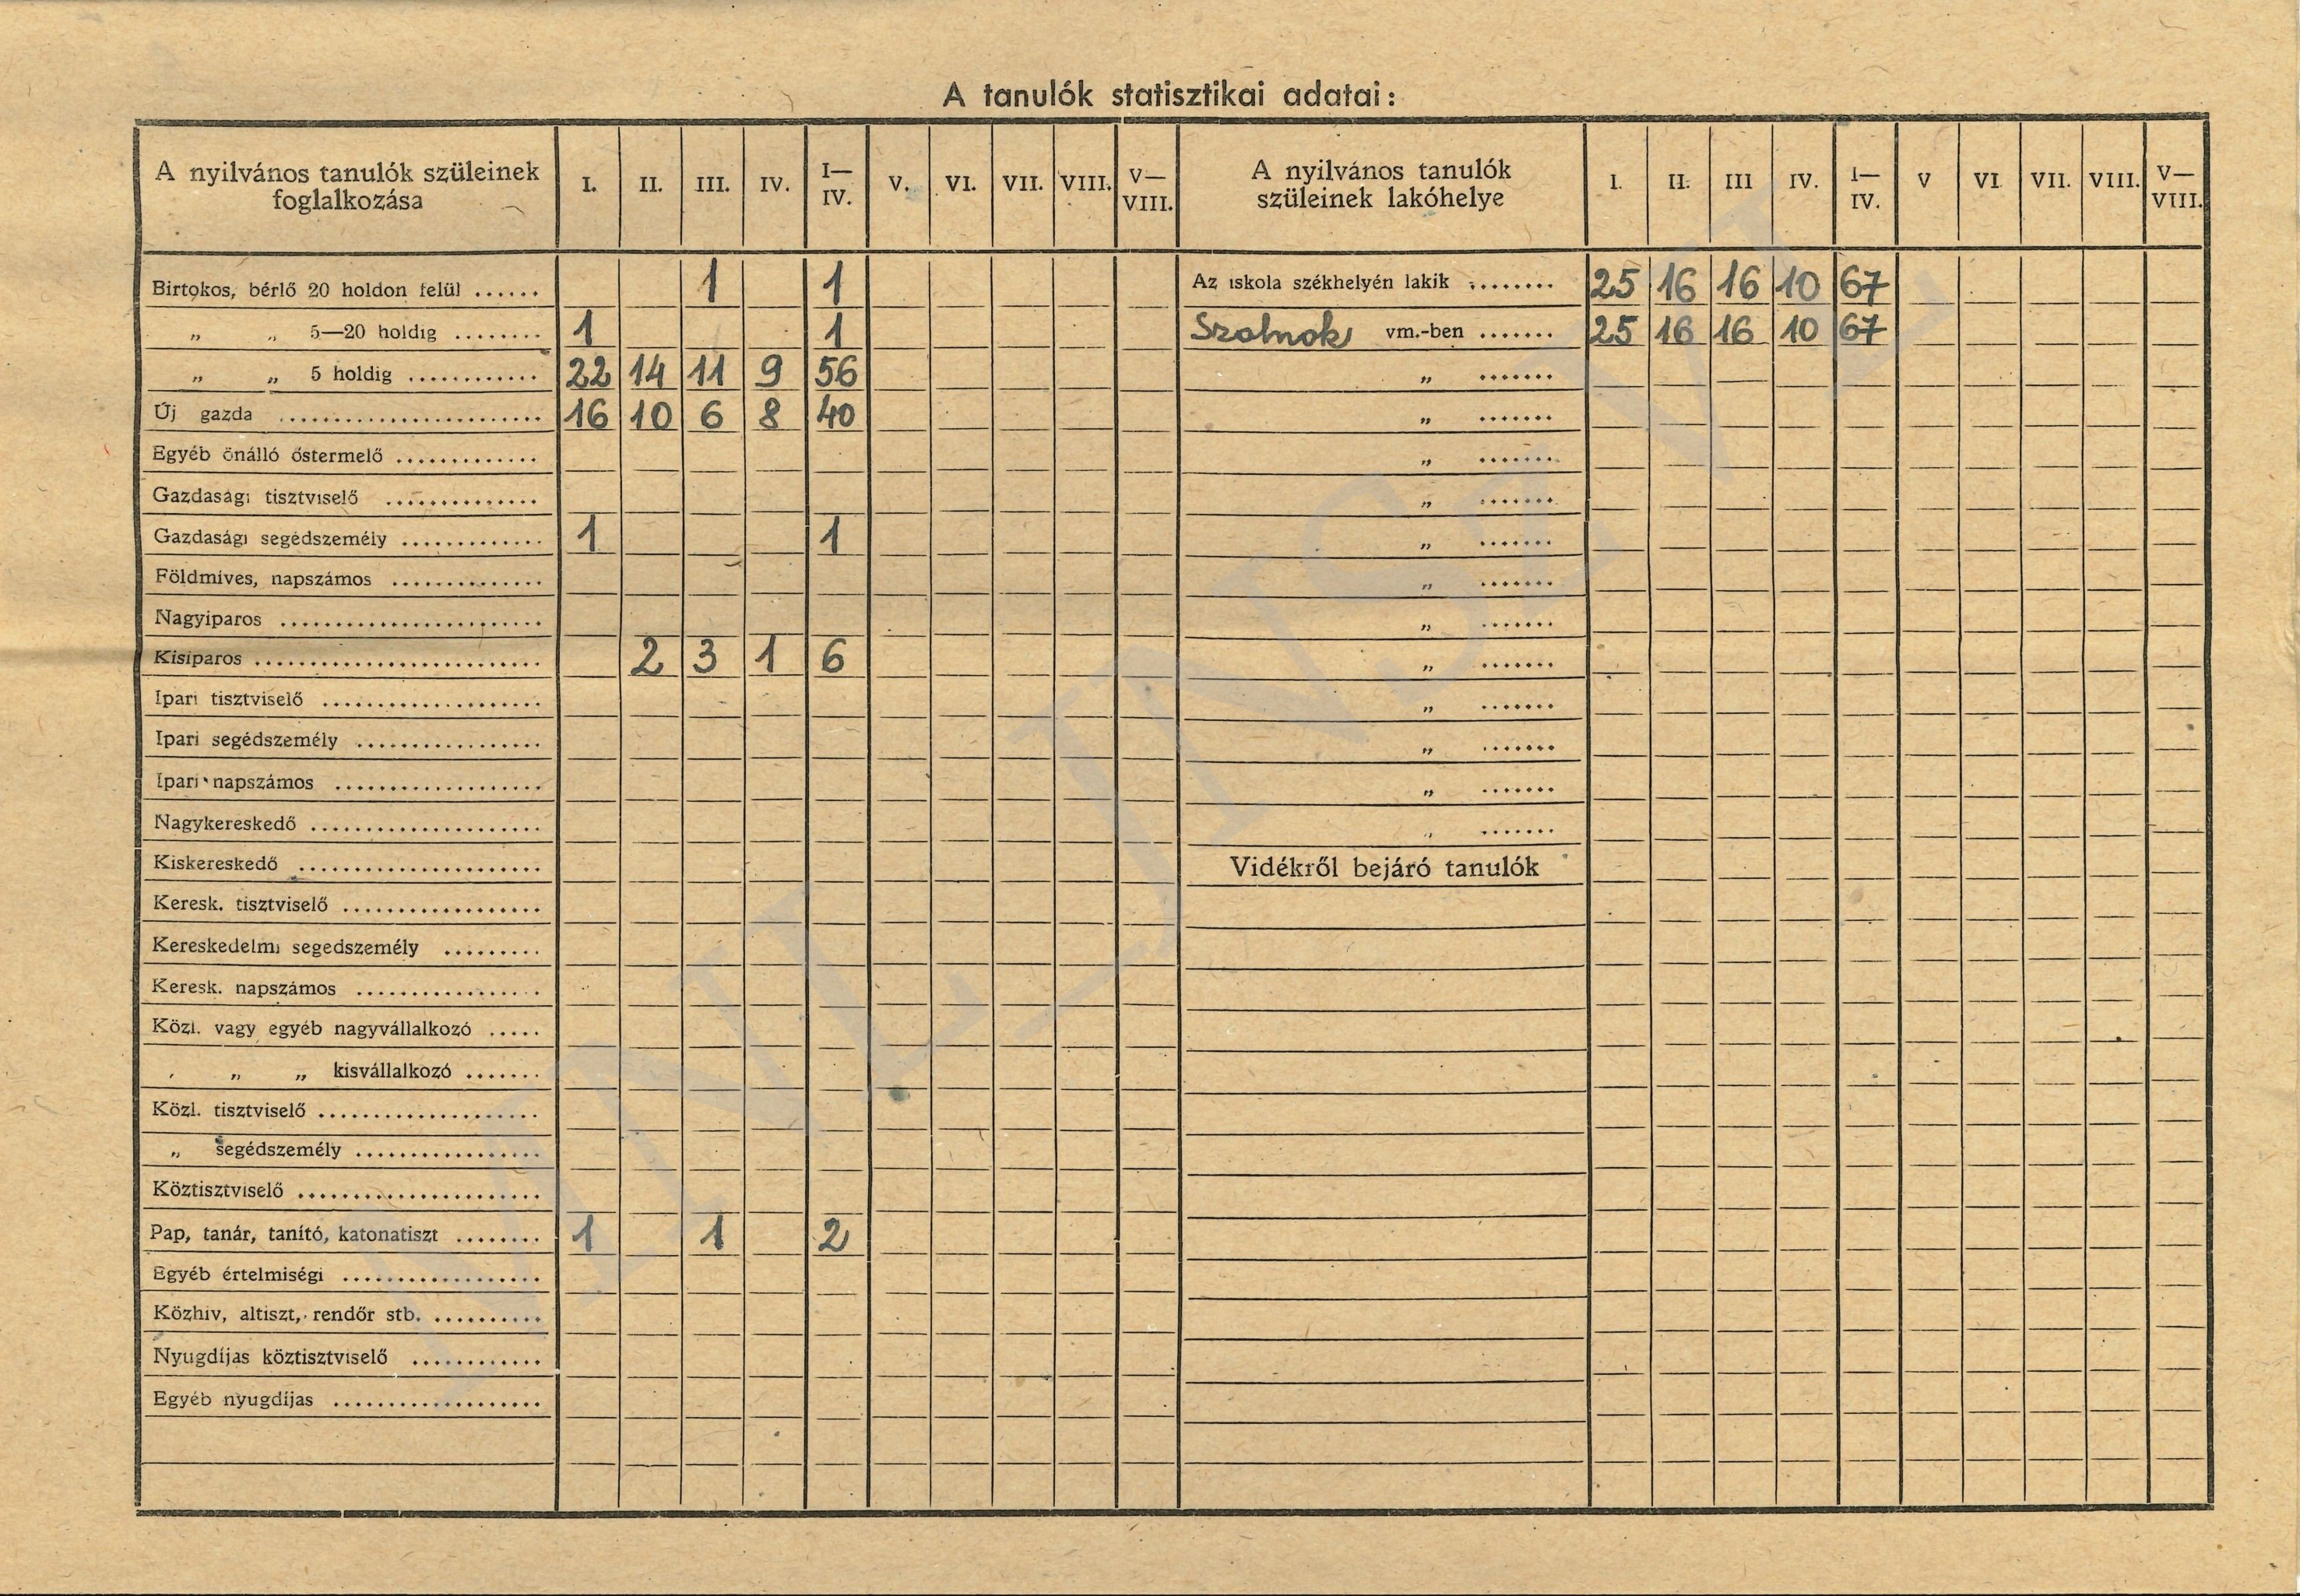 A tanulók statisztikai adatai:
A nyilvános tanulók szüleinek foglalkozása I. II. III. IV. I—IV. V. VI. VII. VIII. V—VIII. A nyilvános tanulók szüleinek lakóhelye I. II. III IV. I—IV. V VI. VII. VIII. V—VIII.
Birtokos, bérlő 20 holdon felül ...... 1 1 Az iskola székhelyén lakik ........ 25 16 16 10 67
„ „ 5—20 holdig ........ 1 1 Szolnok vm.-ben ....... 25 16 16 10 67
„ „ 5 holdig ............ 22 14 11 9 56 „ .......
Új gazda ........................ 16 10 6 8 40 „ .......
Egyéb önálló őstermelő ............. „ .......
Gazdasági tisztviselő .............. „ .......
Gazdasági segédszemély ............. 1 1 „ .......
Földmives, napszámos .............. „ .......
Nagyiparos ........................ „ .......
Kisiparos .......................... 2 3 1 6 „ .......
Ipari tisztviselő .................... „ .......
Ipari segédszemély ................. „ .......
Ipari napszámos ................... „ .......
Nagykereskedő ..................... „ .......
Kiskereskedő ...................... Vidékről bejáró tanulók
Keresk. tisztviselő ..................
Kereskedelmi segedszemély .........
Keresk. napszámos .................
Közl. vagy egyéb nagyvállalkozó .....
„ „ „ kisvállalkozó .......
Közl. tisztviselő ....................
„ segédszemély .................
Köztisztviselő ......................
Pap, tanár, tanító, katonatiszt ........ 1 1 2
Egyéb értelmiségi ..................
Közhiv, altiszt, rendőr stb. ..........
Nyugdíjas köztisztviselő ............
Egyéb nyugdíjas ...................